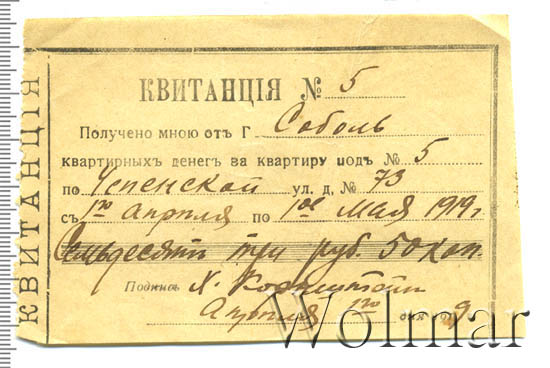 КВИТАНЦІЯ
КВИТАНЦІЯ № 5
Получено мною отъ Г Соболь
квартирныхъ денег за квартиру подъ № 5
по Успенской ул. д. № 73
съ 1го апрѣля по 1ое Мая 1919 г.
Семьдесятъ три руб. 50 коп.
Подпись Х.
Апрѣля 1го дня 9
Wolmar